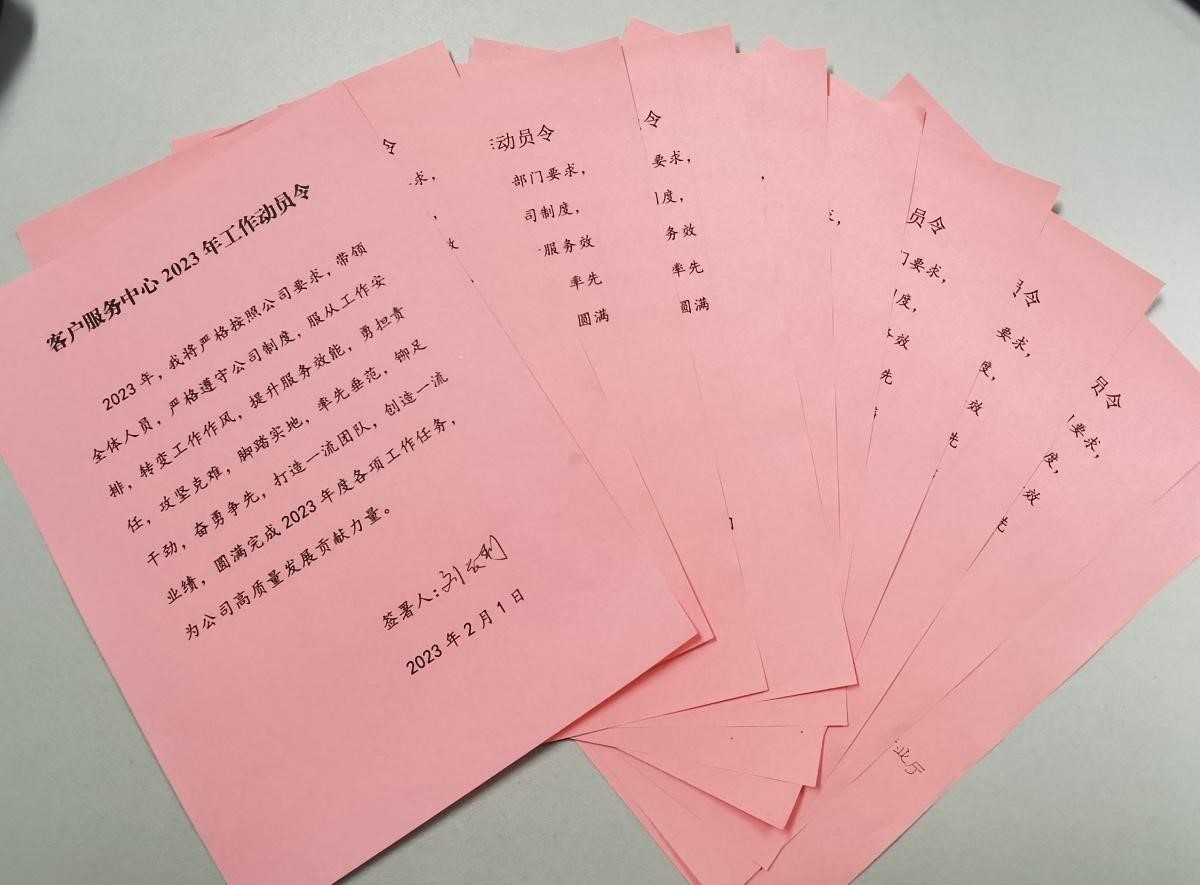 客户服务中心 2023 年工作动员令
2023 年，我将严格按照公司要求，带领
全体人员，严格遵守公司制度，服从工作安
排，转变工作作风，提升服务效能，勇担责
任，攻坚克难，脚踏实地，率先垂范，铆足
干劲，奋勇争先，打造一流团队，创造一流
业绩，圆满完成 2023 年度各项工作任务，
为公司高质量发展贡献力量。
签署人：刘长利
2023 年 2 月 1 日
令
求，
动员令
部门要求，
司制度，
服务效
率先
圆满
令
要求，
度，
务效
率先
圆满
员令
门要求，
度，
务效
先
令
要求，
度，
效
先
员令
要求，
度，
效
先
业厅